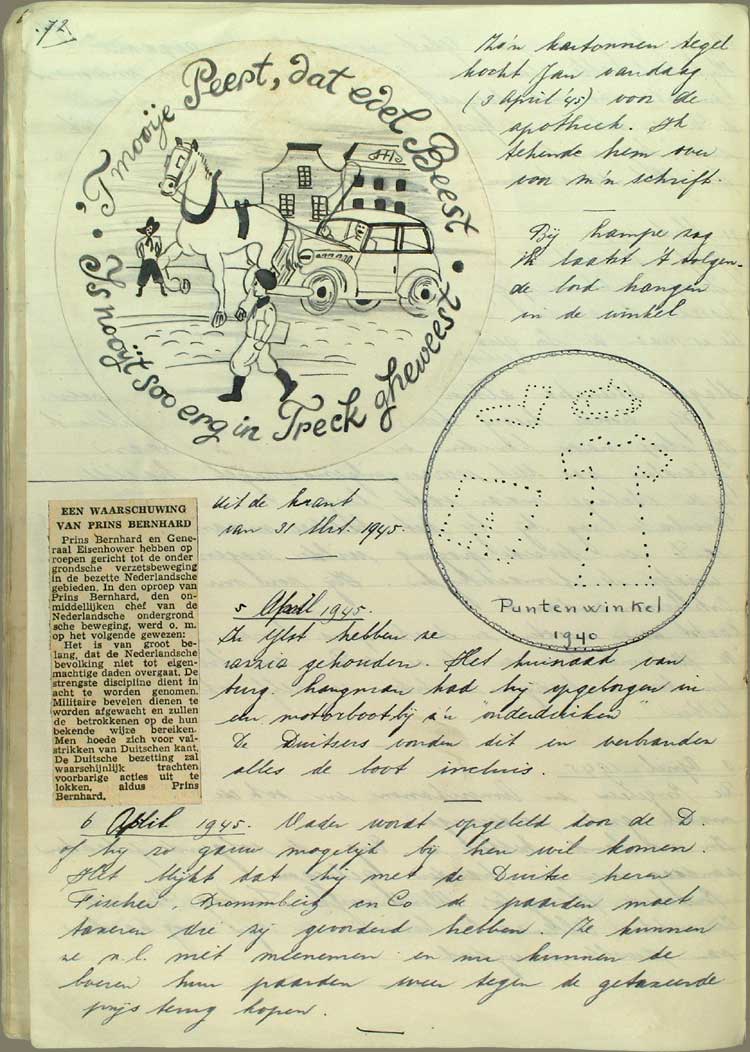 72
'T mooije Peert, dat edel Beest
Is nooÿt soo erg in Treck gheweest
Zo'n kartonnen tegel
kocht Jan vandaag
(3 April '45) voor de
apotheek. Ik
tekende hem over
voor m'n schrift.
Bij Kampe zag
ik laatst 't volgen-
de bord hangen
in de winkel
Puntenwinkel
1940
EEN WAARSCHUWING
VAN PRINS BERNHARD
Prins Bernhard en Gene-
raal Eisenhower hebben op
roepen gericht tot de onder
grondsche verzetsbeweging
in de bezette Nederlandsche
gebieden. In den oproep van
Prins Bernhard, den on-
middellijken chef van de
Nederlandsche ondergrond
sche beweging, werd o. m.
op het volgende gewezen:
Het is van groot be-
lang, dat de Nederlandsche
bevolking niet tot eigen-
machtige daden overgaat. De
strengste discipline dient in
acht te worden genomen.
Militaire bevelen dienen te
worden afgewacht en zullen
de betrokkenen op de hun
bekende wijze bereiken.
Men hoede zich voor val-
strikken van Duitschen kant.
De Duitsche bezetting zal
waarschijnlijk trachten
voorbarige acties uit te
lokken, aldus Prins
Bernhard.
Uit de krant
van 31 Mrt. 1945.
5 April 1945.
In IJlst hebben ze
razzia gehouden. Het huisraad van
burg. had hij opgeborgen in
een motorboot bij z'n "onderduiken"
De Duitsers vonden dit en verbranden
alles de boot incluis.
6 April 1945. Vader wordt opgebeld door de D.
of hij zo gauw mogelijk bij hen wil komen.
Het blijkt dat hij met de Duitse heren
Fischer, en Co de paarden moet
taxeren die zij gevorderd hebben. Ze kunnen
ze n.l. niet meenemen en nu kunnen de
boeren hun paarden weer tegen de getaxeerde
prijs terug kopen.